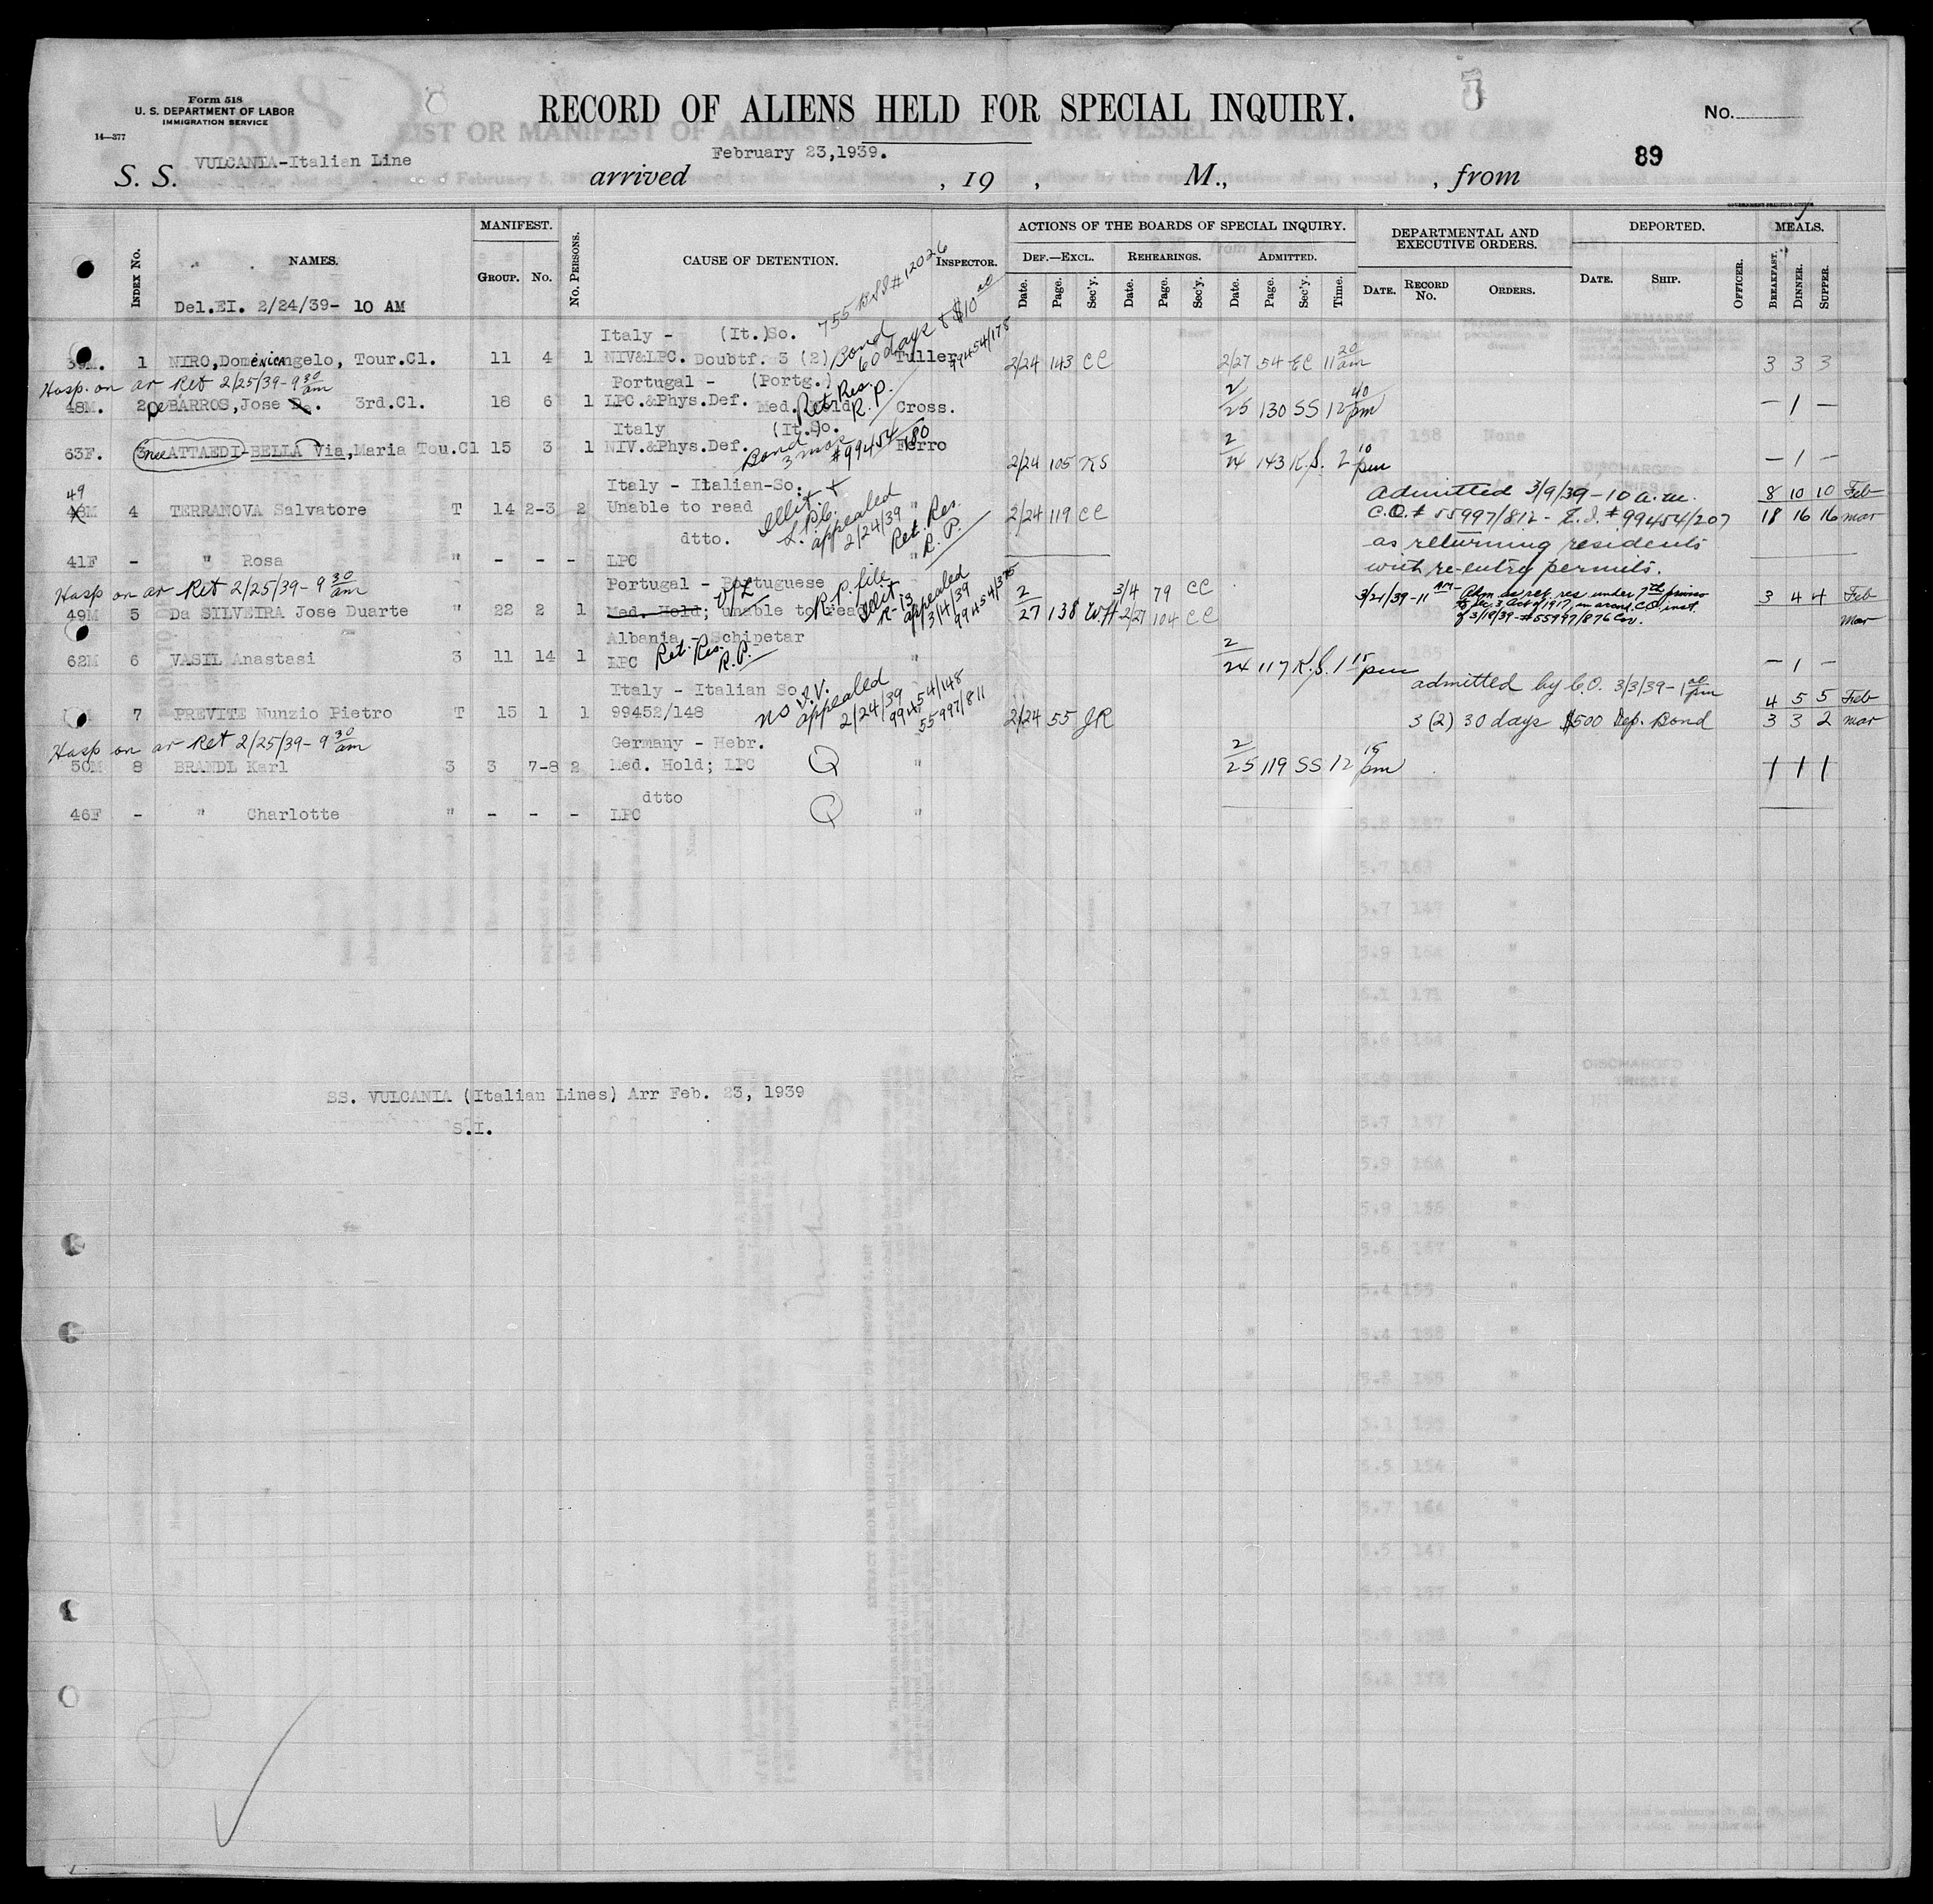 Form 518
U. S. DEPARTMENT OF LABOR
IMMIGRATION SERVICE
14—377
RECORD OF ALIENS HELD FOR SPECIAL INQUIRY.
No.
89
S. S. VULCANIA-Italian Line arrived February 23,1939. , 19 , M., , from
GOVERNMENT PRINTING OFFICE
INDEX No. NAMES. MANIFEST. GROUP. No. No. PERSONS. CAUSE OF DETENTION. INSPECTOR. ACTIONS OF THE BOARDS OF SPECIAL INQUIRY. DEF.—EXCL. Date. Page. Sec'y. REHEARINGS. Date. Page. Sec'y. ADMITTED. Date. Page. Sec'y. Time. DEPARTMENTAL AND EXECUTIVE ORDERS. DATE. RECORD No. ORDERS. DEPORTED. DATE. SHIP. OFFICER. MEALS. BREAKFAST. DINNER. SUPPER.
Del.EI. 2/24/39- 10 AM
Italy - (It.)So.
39M. 1 NIRO,Domenicangelo, Tour.Cl. 11 4 1 NIV&LPC. Doubtf. 3 (2) Bond 60 days & $10 00 Tuller 99454/178 2/24 143 CC 2/27 54 EC 11 20 am 3 3 3
Hosp. on ar Ret 2/25/39-9 30 am
Portugal - (Portg.)
48M. 2 De BARROS,Jose 3rd.Cl. 18 6 1 LPC.&Phys.Def. Med. Hold Ret. Res. R.P. Cross. 2/25 130 SS 12 40 pm — 1 —
Italy (It.)So.
63F. 3 nee ATTAEDI-BELLA Via,Maria Tou.Cl 15 3 1 NIV.&Phys.Def. Bond 3 mos #99454/180 Ferro 2/24 105 KS 2/24 143 K.S. 2 10 pm — 1 —
Italy - Italian-So.
49
48M 4 TERRANOVA Salvatore T 14 2-3 2 Unable to read Illit + L.P.C. appealed 2/24/39 Ret. Res. R.P. " 2/24 119 CC 8 10 10 Feb
18 16 16 mar
Admitted 3/9/39-10 a.m.
C.O. # 55997/812 - E.I. # 99454/207
as returning residents
with re-entry permits.
dtto.
41F - " Rosa " - - - LPC "
Hosp on ar Ret 2/25/39-9 30 am
Portugal - Portuguese
49M 5 Da SILVEIRA Jose Duarte " 22 2 1 Med. Hold; Unable to read R.P. file Illit appealed 3/4/39 99454/375 2/27 138 WH 2/27 104 CC 3/4 79 CC 3 4 4 Feb
mar
3/21/39-11 am- Adm as ret. res under 7th proviso
to Sec. 3 Act of 1917, in accord. C.O. inst.
of 3/18/39-#55997/876 Cov.
Albania - Schipetar
62M 6 VASIL Anastasi 3 11 14 1 LPC Ret. Res. R.P. " 2/24 117 K.S. 1 15 pm — 1 —
Italy - Italian So.
7 PREVITE Nunzio Pietro T 15 1 1 99452/148 no I.V. appealed 2/24/39 99454/148 55997/811 2/24 55 JR
admitted by C.O. 3/3/39-1 20 pm 4 5 5 Feb
3 (2) 30 days $500 Dep. Bond 3 3 2 mar
Hosp on ar Ret 2/25/39-9 30 am
Germany - Hebr.
50M 8 BRANDL Karl 3 3 7-8 2 Med. Hold; LPC Q " 2/25 119 SS 12 15 pm 1 1 1
dtto
46F - " Charlotte " - - - LPC Q "
SS. VULCANIA (Italian Lines) Arr Feb. 23, 1939
S.I.